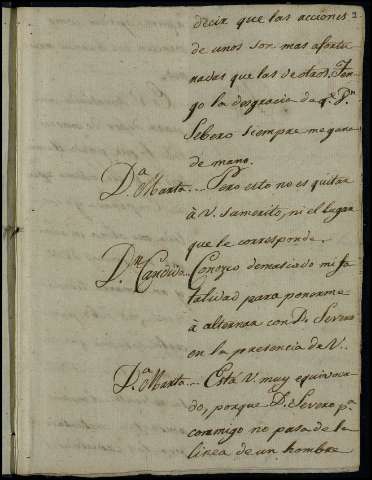 decir que las acciones 2
de unos son mas afortu
nadas que las de otros. Ten
go la desgracia de q.e D.n
Sebero siempre me gana
de mano.
D.a Marta... Pero esto no es quitar
à V. su merito, ni el lugar
que le corresponde.
D.n Candido... Conozco demasiado mi fa
talidad para ponerme
à alternar con D. Severo
en la presencia de V.
D.a Marta... Está V. muy equivoca
do, porque D. Severo p.a
conmigo no pasa de la
linea de un hombre